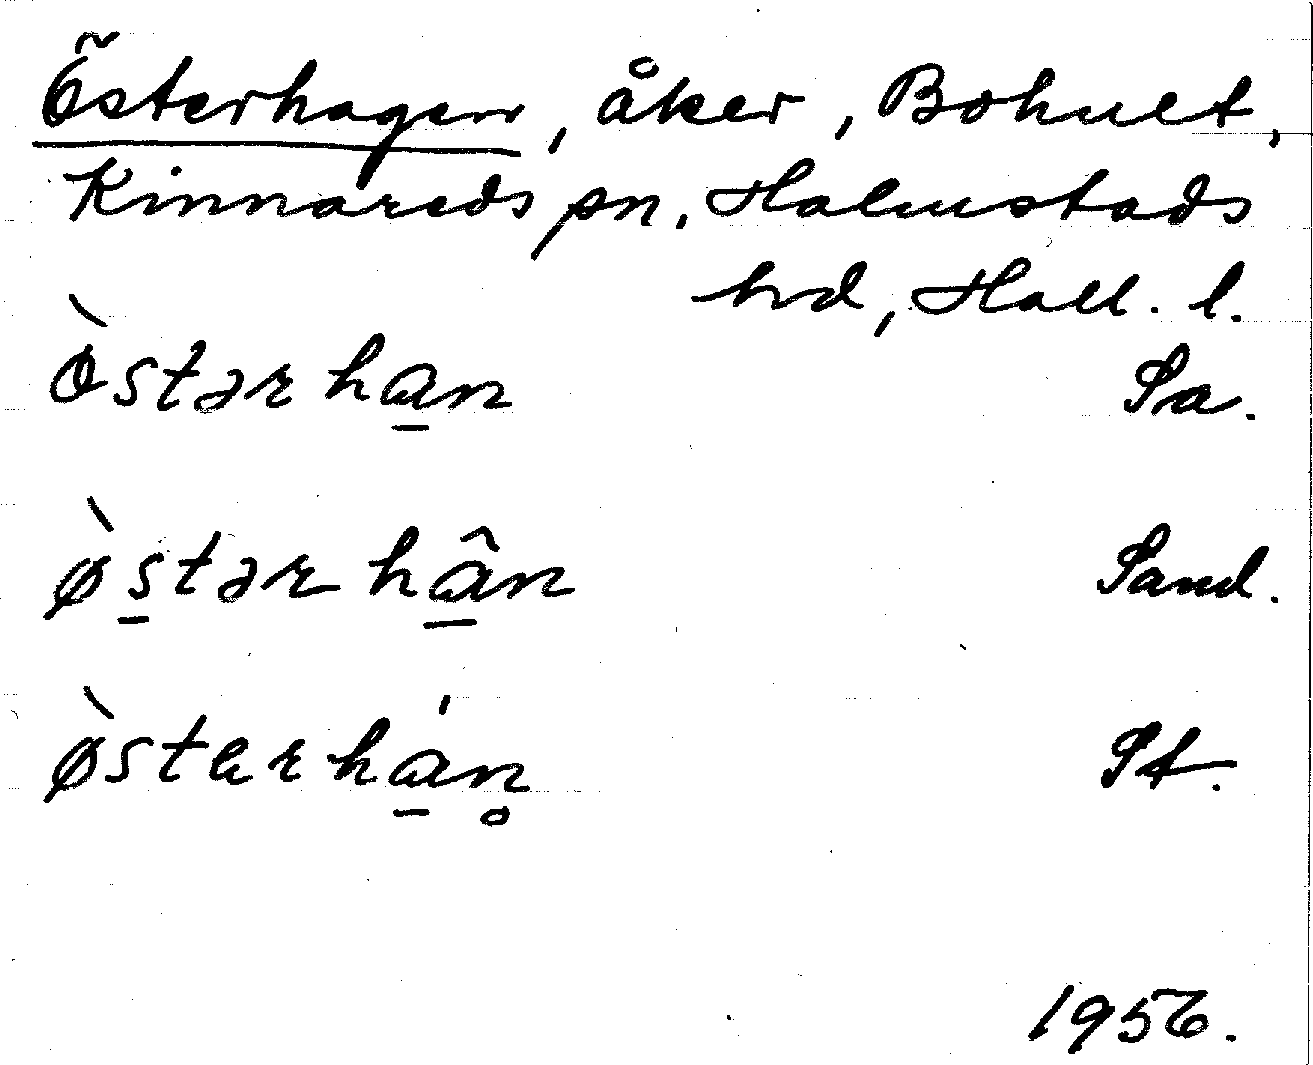 Österhagen, åker, Bohult,
Kinnareds sn, Halmstads
hd, Hall. l.
ø̀stərha̲n Sa.
ø̀s̲tərhâ̲n Sand.
ø̀starhá̲n̥ St.
1956.